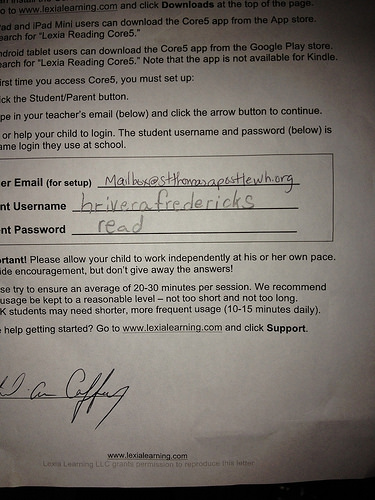 to www.lexialearning.com and click Downloads at the top of the page.
ad and iPad Mini users can download the Core5 app from the App store.
earch for "Lexia Reading Core5."
ndroid tablet users can download the Core5 app from the Google Play store.
earch for "Lexia Reading Core5." Note that the app is not available for Kindle.
irst time you access Core5, you must set up:
ck the Student/Parent button.
pe in your teacher's email (below) and click the arrow button to continue.
or help your child to login. The student username and password (below) is
ame login they use at school.
er Email (for setup) Mailbox@stthomasapostlewh.org
nt Username briverafredericks
nt Password read
ortant! Please allow your child to work independently at his or her own pace.
ide encouragement, but don't give away the answers!
se try to ensure an average of 20-30 minutes per session. We recommend
usage be kept to a reasonable level – not too short and not too long.
K students may need shorter, more frequent usage (10-15 minutes daily).
help getting started? Go to www.lexialearning.com and click Support.
www.lexialearning.com
Lexia Learning LLC grants permission to reproduce this letter